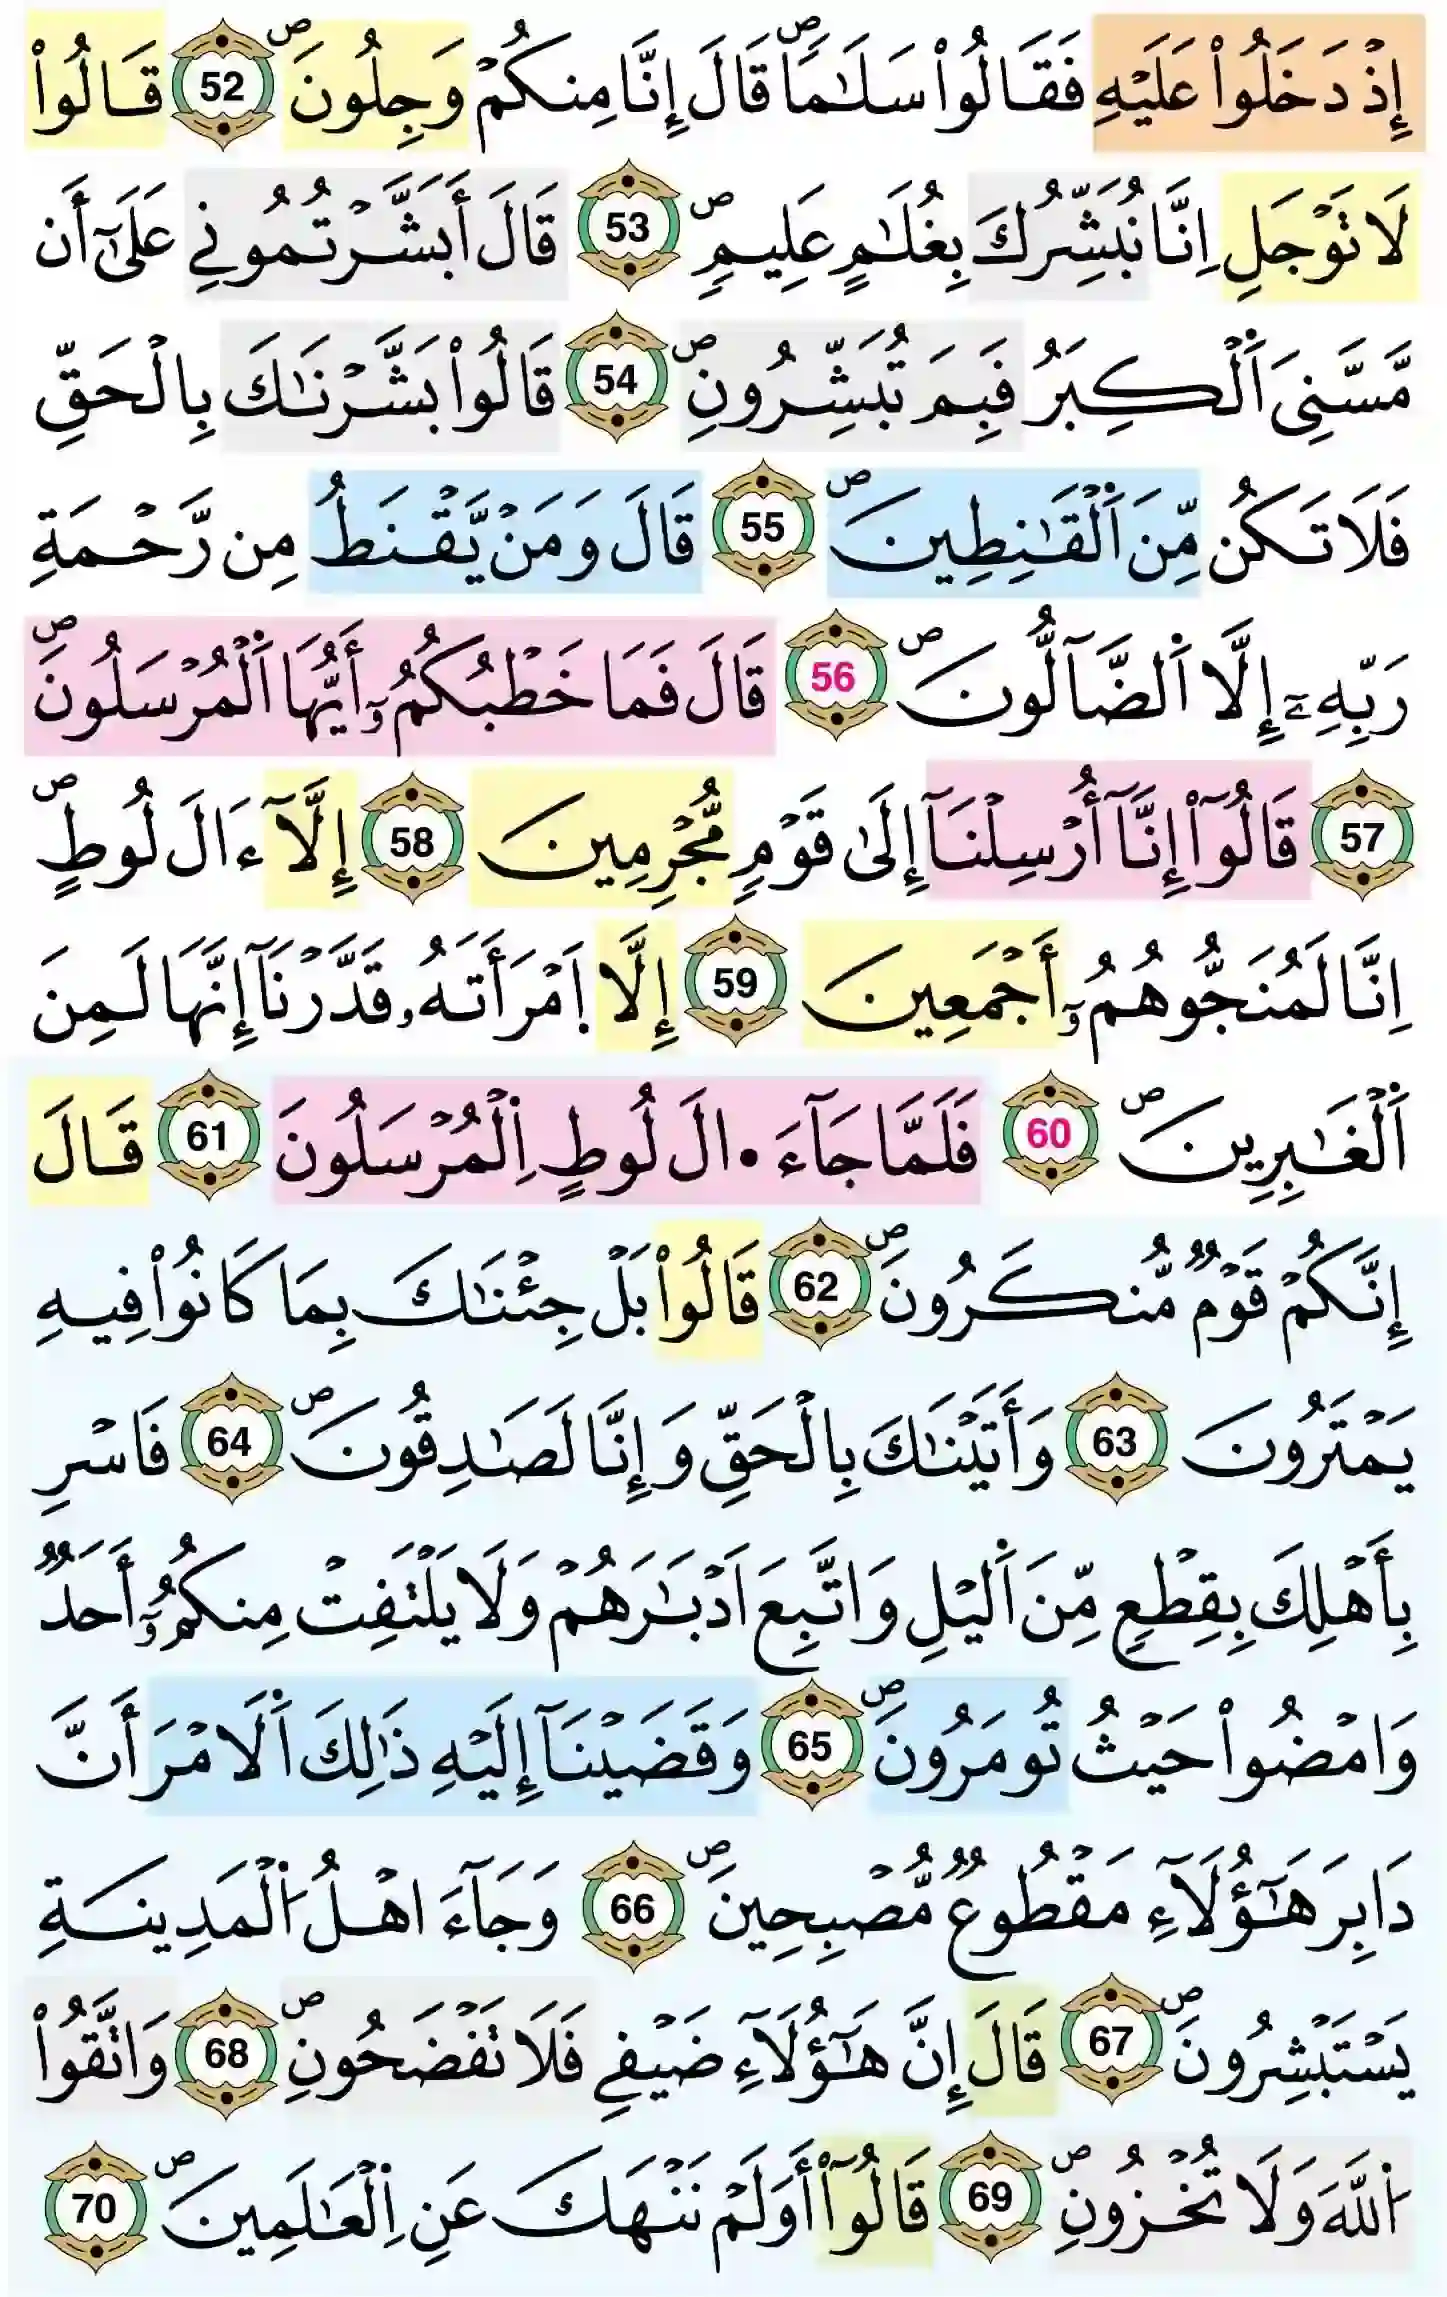 إِذْ دَخَلُواْ عَلَيْهِ فَقَالُواْ سَلَٰماًۖ قَالَ إِنَّا مِنكُمْ وَجِلُونَۖ 52 قَالُواْ
لَا تَوْجَلِ اِنَّا نُبَشِّرُكَ بِغُلَٰمٍ عَلِيمٍۖ 53 قَالَ أَبَشَّرْتُمُونِي عَلَىٰٓ أَن
مَّسَّنِيَ اَ۬لْكِبَرُ فَبِمَ تُبَشِّرُونِۖ 54 قَالُواْ بَشَّرْنَٰكَ بِالْحَقِّ
فَلَا تَكُن مِّنَ اَ۬لْقَٰنِطِينَۖ 55 قَالَ وَمَنْ يَّقْنَطُ مِن رَّحْمَةِ
رَبِّهِۦٓ إِلَّا اَ۬لضَّآلُّونَۖ 56 قَالَ فَمَا خَطْبُكُمُۥٓ أَيُّهَا اَ۬لْمُرْسَلُونَۖ
57 قَالُوٓاْ إِنَّآ أُرْسِلْنَآ إِلَىٰ قَوْمٍ مُّجْرِمِينَ 58 إِلَّآ ءَالَ لُوطٍۖ
اِنَّا لَمُنَجُّوهُمُۥٓ أَجْمَعِينَ 59 إِلَّا اَ۪مْرَأَتَهُۥ قَدَّرْنَآ إِنَّهَا لَمِنَ
اَ۬لْغَٰبِرِينَۖ 60 فَلَمَّا جَآءَ ا۬لَ لُوطٍ اِ۬لْمُرْسَلُونَ 61 قَالَ
إِنَّكُمْ قَوْمٌ مُّنكَرُونَۖ 62 قَالُواْ بَلْ جِئْنَٰكَ بِمَا كَانُواْ فِيهِ
يَمْتَرُونَ 63 وَأَتَيْنَٰكَ بِالْحَقِّ وَإِنَّا لَصَٰدِقُونَۖ 64 فَاسْرِ
بِأَهْلِكَ بِقِطْعٍ مِّنَ اَ۬ليْلِ وَاتَّبِعَ اَدْبَٰرَهُمْ وَلَا يَلْتَفِتْ مِنكُمُۥٓ أَحَدٌ
وَامْضُواْ حَيْثُ تُومَرُونَۖ 65 وَقَضَيْنَآ إِلَيْهِ ذَٰلِكَ اَ۬لَامْرَ أَنَّ
دَابِرَ هَٰٓؤُلَآءِ مَقْطُوعٌ مُّصْبِحِينَۖ 66 وَجَآءَ اهْلُ اُ۬لْمَدِينَةِ
يَسْتَبْشِرُونَۖ 67 قَالَ إِنَّ هَٰٓؤُلَآءِ ضَيْفِي فَلَا تَفْضَحُونِۖ 68 وَاتَّقُواْ
اُ۬للَّهَ وَلَا تُخْزُونِۖ 69 قَالُوٓاْ أَوَلَمْ نَنْهَكَ عَنِ اِ۬لْعَٰلَمِينَۖ 70